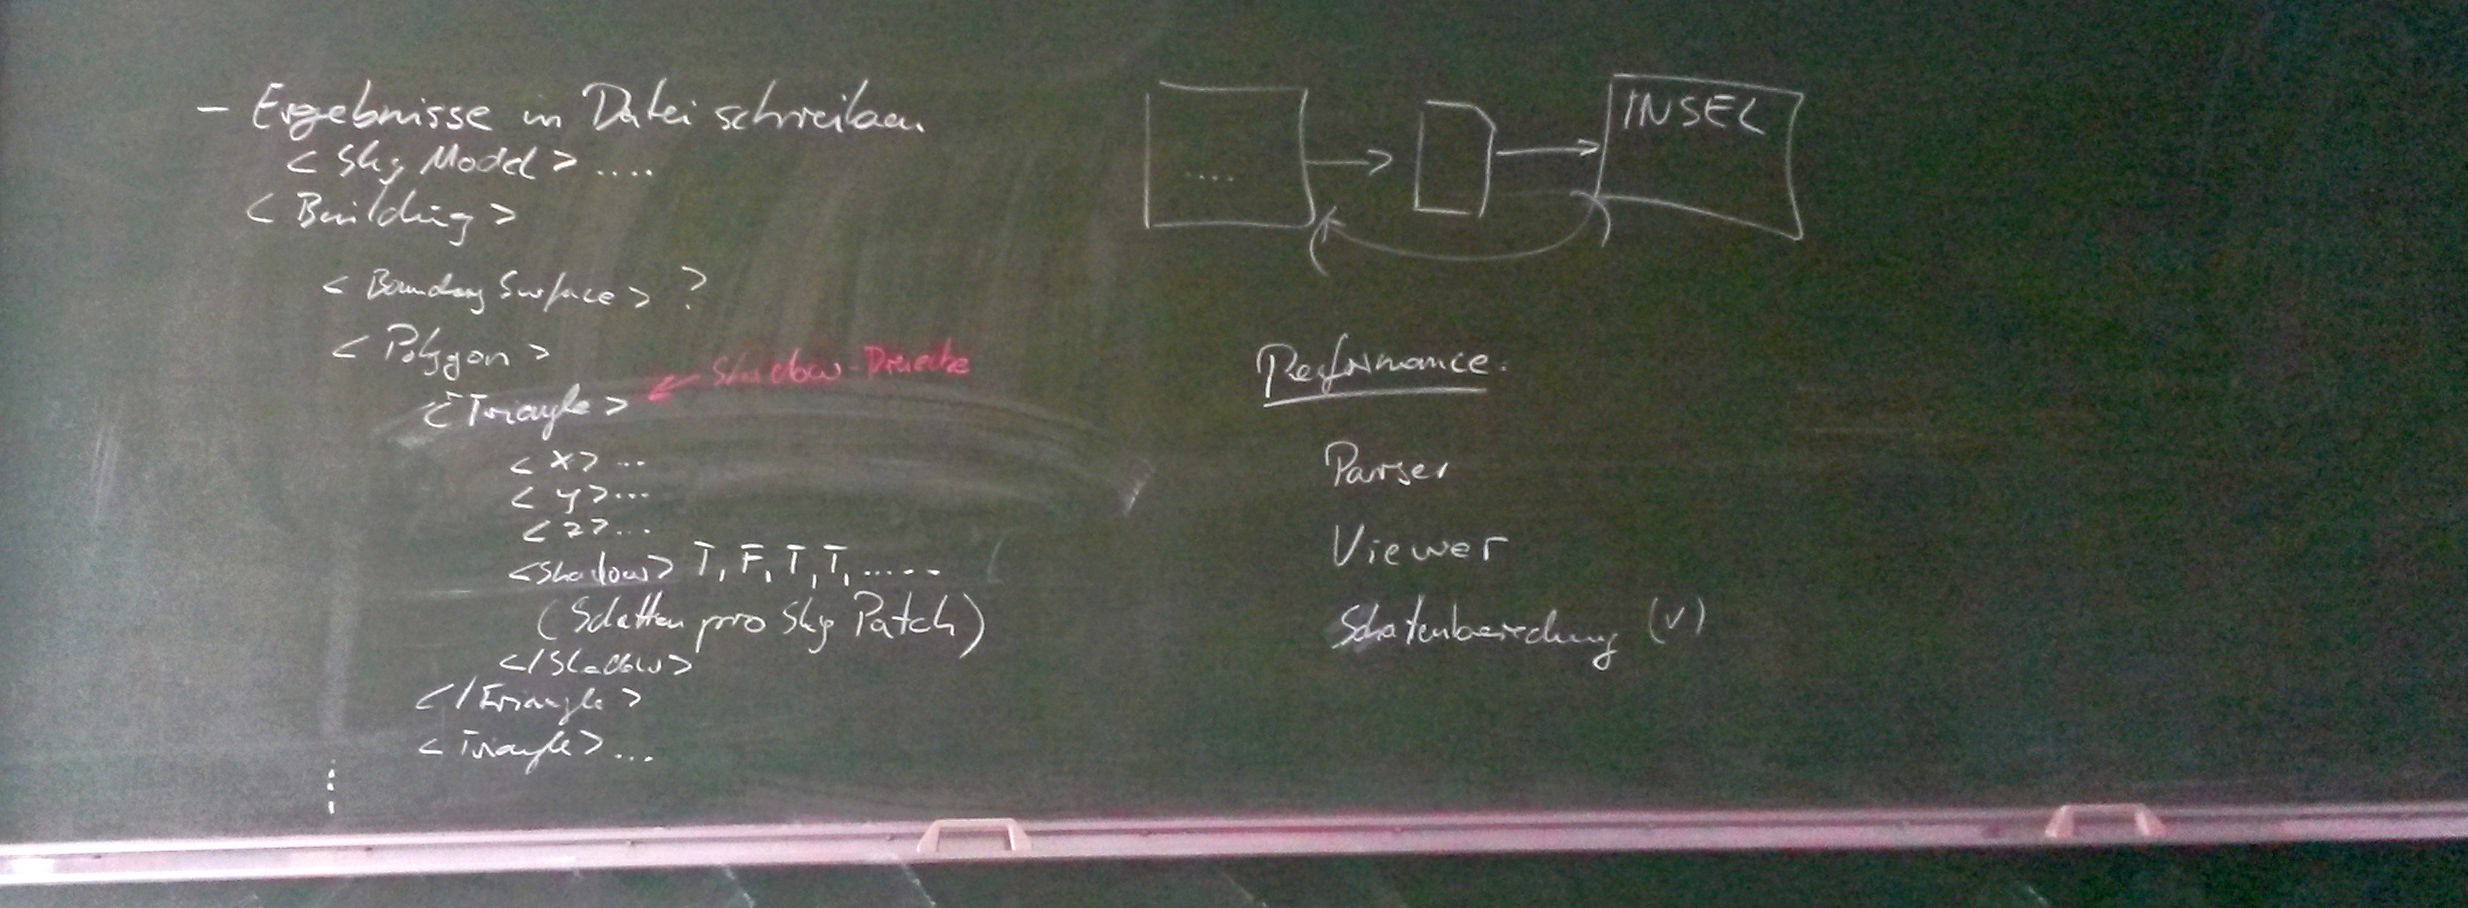 - Ergebnisse in Datei schreiben
< Sky Model > ....
< Building >
< Boundary Surface > ?
< Polygon >
< Triangle >
Shadow-Dreiecke
< x > ...
< y > ...
< z > ...
<Shadow> T, F, T, T, .....
(Schatten pro Sky Patch)
</Shadow>
</Triangle>
< Triangle > ...
....
INSEL
Performance:
Parser
Viewer
Schattenberechnung (v)